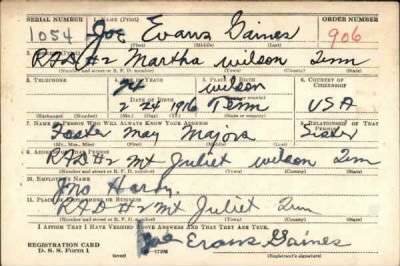 SERIAL NUMBER 1. NAME (Print) ORDER NUMBER
1054 Joe Evans Gaines 906
(First) (Middle) (Last)
R.F.D #2 Martha Wilson Tenn
(Number and street or R. F. D. number) (Town) (County) (State)
3. TELEPHONE 4. 5. PLACE OF BIRTH 6. COUNTRY OF CITIZENSHIP
24 Wilson
DATE OF BIRTH
2 24 1916 Tenn USA
(Exchange) (Number) (Mo.) (Day) (Yr.) (State or country)
7. NAME OF PERSON WHO WILL ALWAYS KNOW YOUR ADDRESS 8. RELATIONSHIP OF THAT PERSON
Foster May Majors Sister
(Mr., Mrs., Miss) (First) (Middle) (Last)
9. ADDRESS OF THAT PERSON
R.F.D #2 Mt Juliet Wilson Tenn
(Number and street or R. F. D. number) (Town) (County) (State)
10. EMPLOYER'S NAME
Jno
11. PLACE OF EMPLOYMENT OR BUSINESS
R.F.D #2 Mt Juliet Tenn
(Number and street or R. F. D. number) (Town) (County) (State)
I AFFIRM THAT I HAVE VERIFIED ABOVE ANSWERS AND THAT THEY ARE TRUE.
REGISTRATION CARD
D. S. S. Form 1
Joe Evans Gaines
(Registrant's signature)